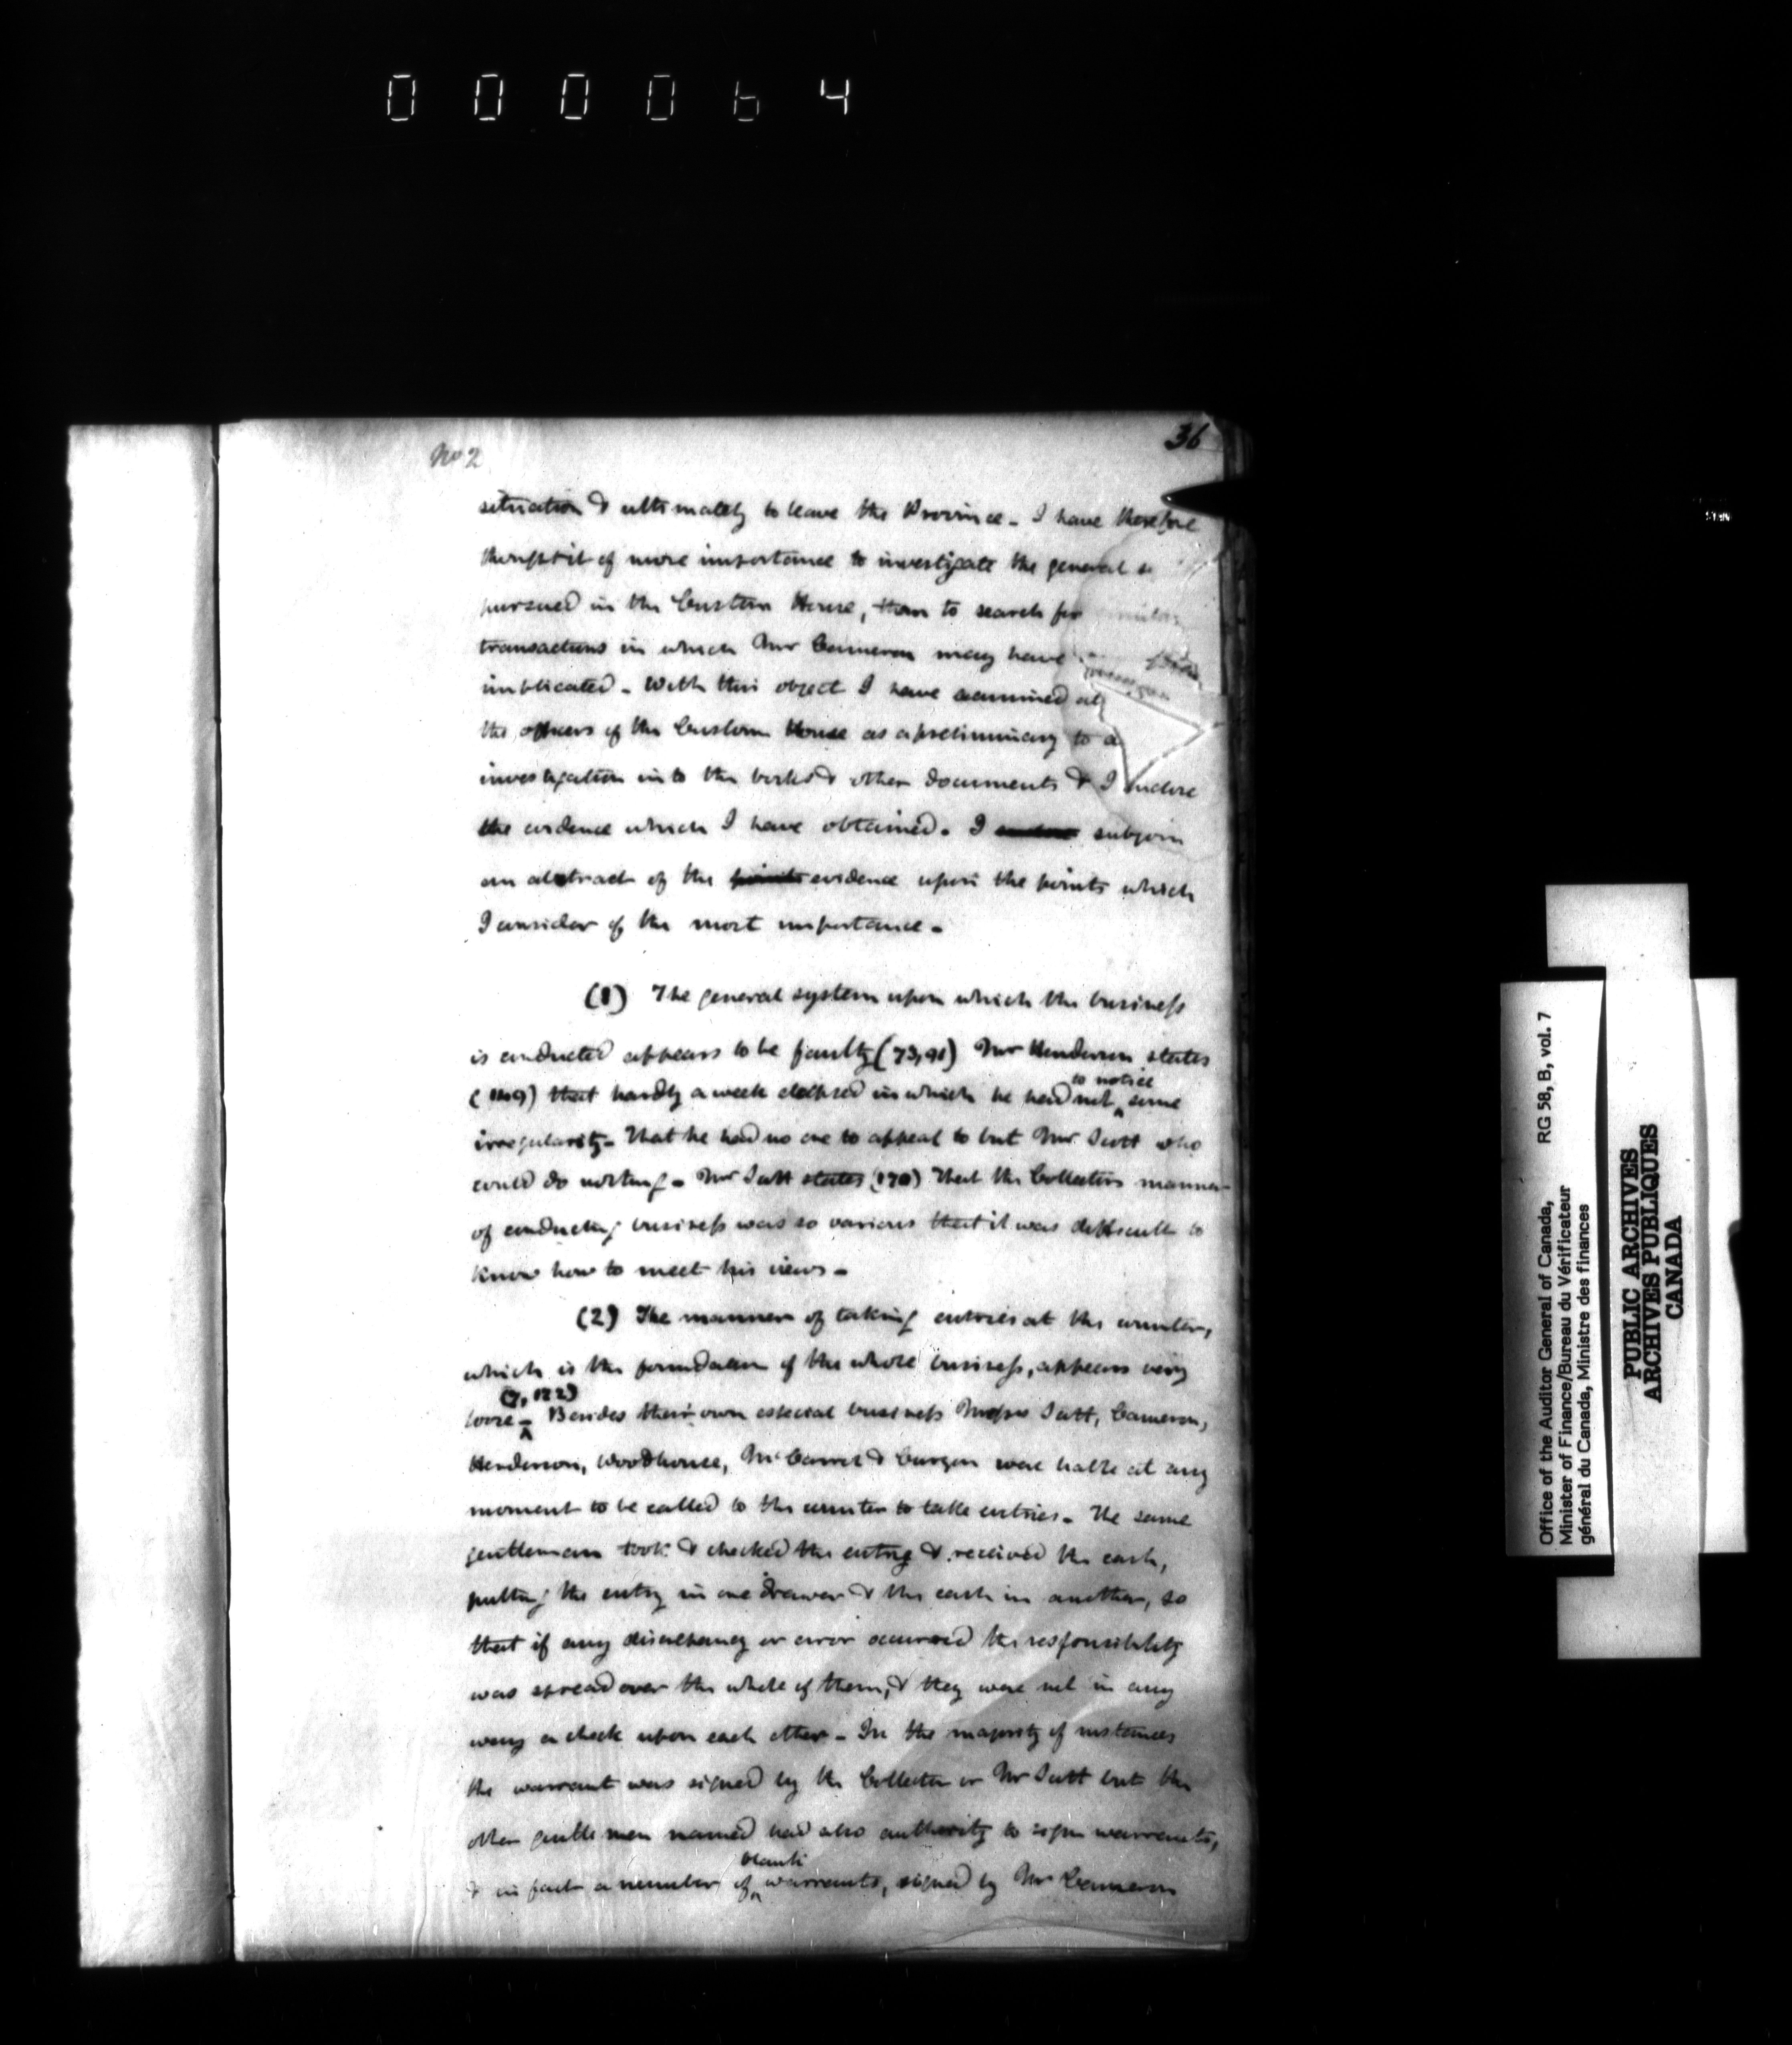 000064
36
No 2
situation & ultimately to leave the Province - I have therefore
thought it of more importance to investigate the general s
pursued in the Custom House, than to search for similar
transactions in which Mr Cameron may have been
implicated - With this object I have examined all
the officers of the Custom House as a preliminary to a
investigation into the books & other documents & I enclose
the evidence which I have obtained. I subjoin
an abstract of the points evidence upon the points which
I consider of the most importance -
(1) The general system upon which the business
is conducted appears to be faulty (73, 91) Mr Henderson states
to notice
(149) that hardly a week elapsed in which he had not some
irregularity - That he had no one to appeal to but Mr Scott who
could do nothing - Mr Scott states (170) That the Collectors manner
of conducting business was so various that it was difficult to
know how to meet his views -
(2) The manner of taking entries at the counter,
which is the foundation of the whole business, appears very
(7, 122)
loose - Besides their own especial business Messrs Scott, Cameron,
Henderson, Woodhouse, & were liable at any
moment to be called to the counter to take entries - The same
gentleman took & checked the entry & received the cash,
putting the entry in one drawer & the cash in another, so
that if any discrepancy or error occurred the responsibility
was spread over the whole of them, & they were not in any
way a check upon each other - In the majority of instances
the warrant was signed by the Collector or Mr Scott but the
other gentlemen named had also authority to sign warrants,
blank
& in fact a number of warrants, signed by Mr Cameron
Office of the Auditor General of Canada,
Minister of Finance/Bureau du Vérificateur
général du Canada, Ministre des finances
RG 58, B, vol. 7
PUBLIC ARCHIVES
ARCHIVES PUBLIQUES
CANADA